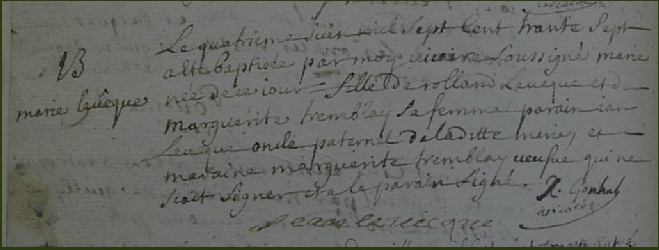 B
marie levêque
Le quatrieme juin mil sept cent trante sept
a été baptisée par moy vicaire soussigné marie
née de ce jour = fille de rolland Levêque et de
marguérite tremblay sa femme parain jan
Levêque oncle paternel de laditte marie, et
maraine marguerite tremblay veufve qui ne
scait signer et a le parain signé.
vicaire
jean leveque